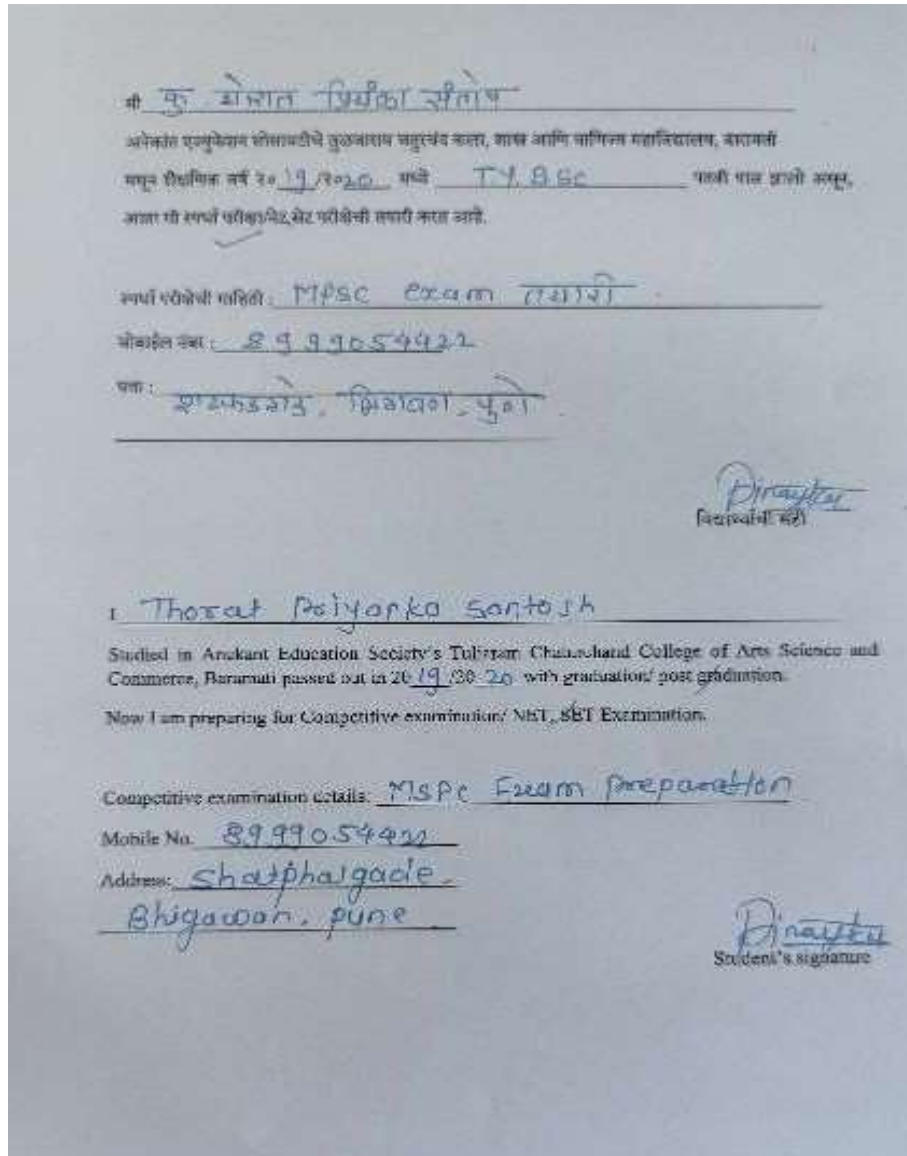 मी कु थोरात प्रियंका संतोष
अनेकांत एज्युकेशन सोसायटीचे तुळजाराम चतुरचंद कला, शास्त्र आणि वाणिज्य महाविद्यालय, बारामती
मधून शैक्षणिक वर्ष २० 19 /२०२० मध्ये T.Y. B.Sc पदवी पास झालो असून,
आता मी स्पर्धा परीक्षा/नेट,सेट परीक्षेची तयारी करत आहे.
स्पर्धा परीक्षेची माहिती : MPSC exam तयारी .
मोबाईल नंबर : 8999054422
पत्ता :
भिगवण, पुणे .
विद्यार्थ्याची सही
I Thorat Priyanka Santosh
Studied in Anekant Education Society's Tuljaram Chaturchand College of Arts Science and
Commerce, Baramati passed out in 20 19 /20 20 with graduation/ post graduation.
Now I am preparing for Competitive examination/ NET, SET Examination.
Competitive examination details: MSPC Exam Preparation
Mobile No. 8999054422
Address: Shatphalgade.
Bhigawan, pune
Student's signature